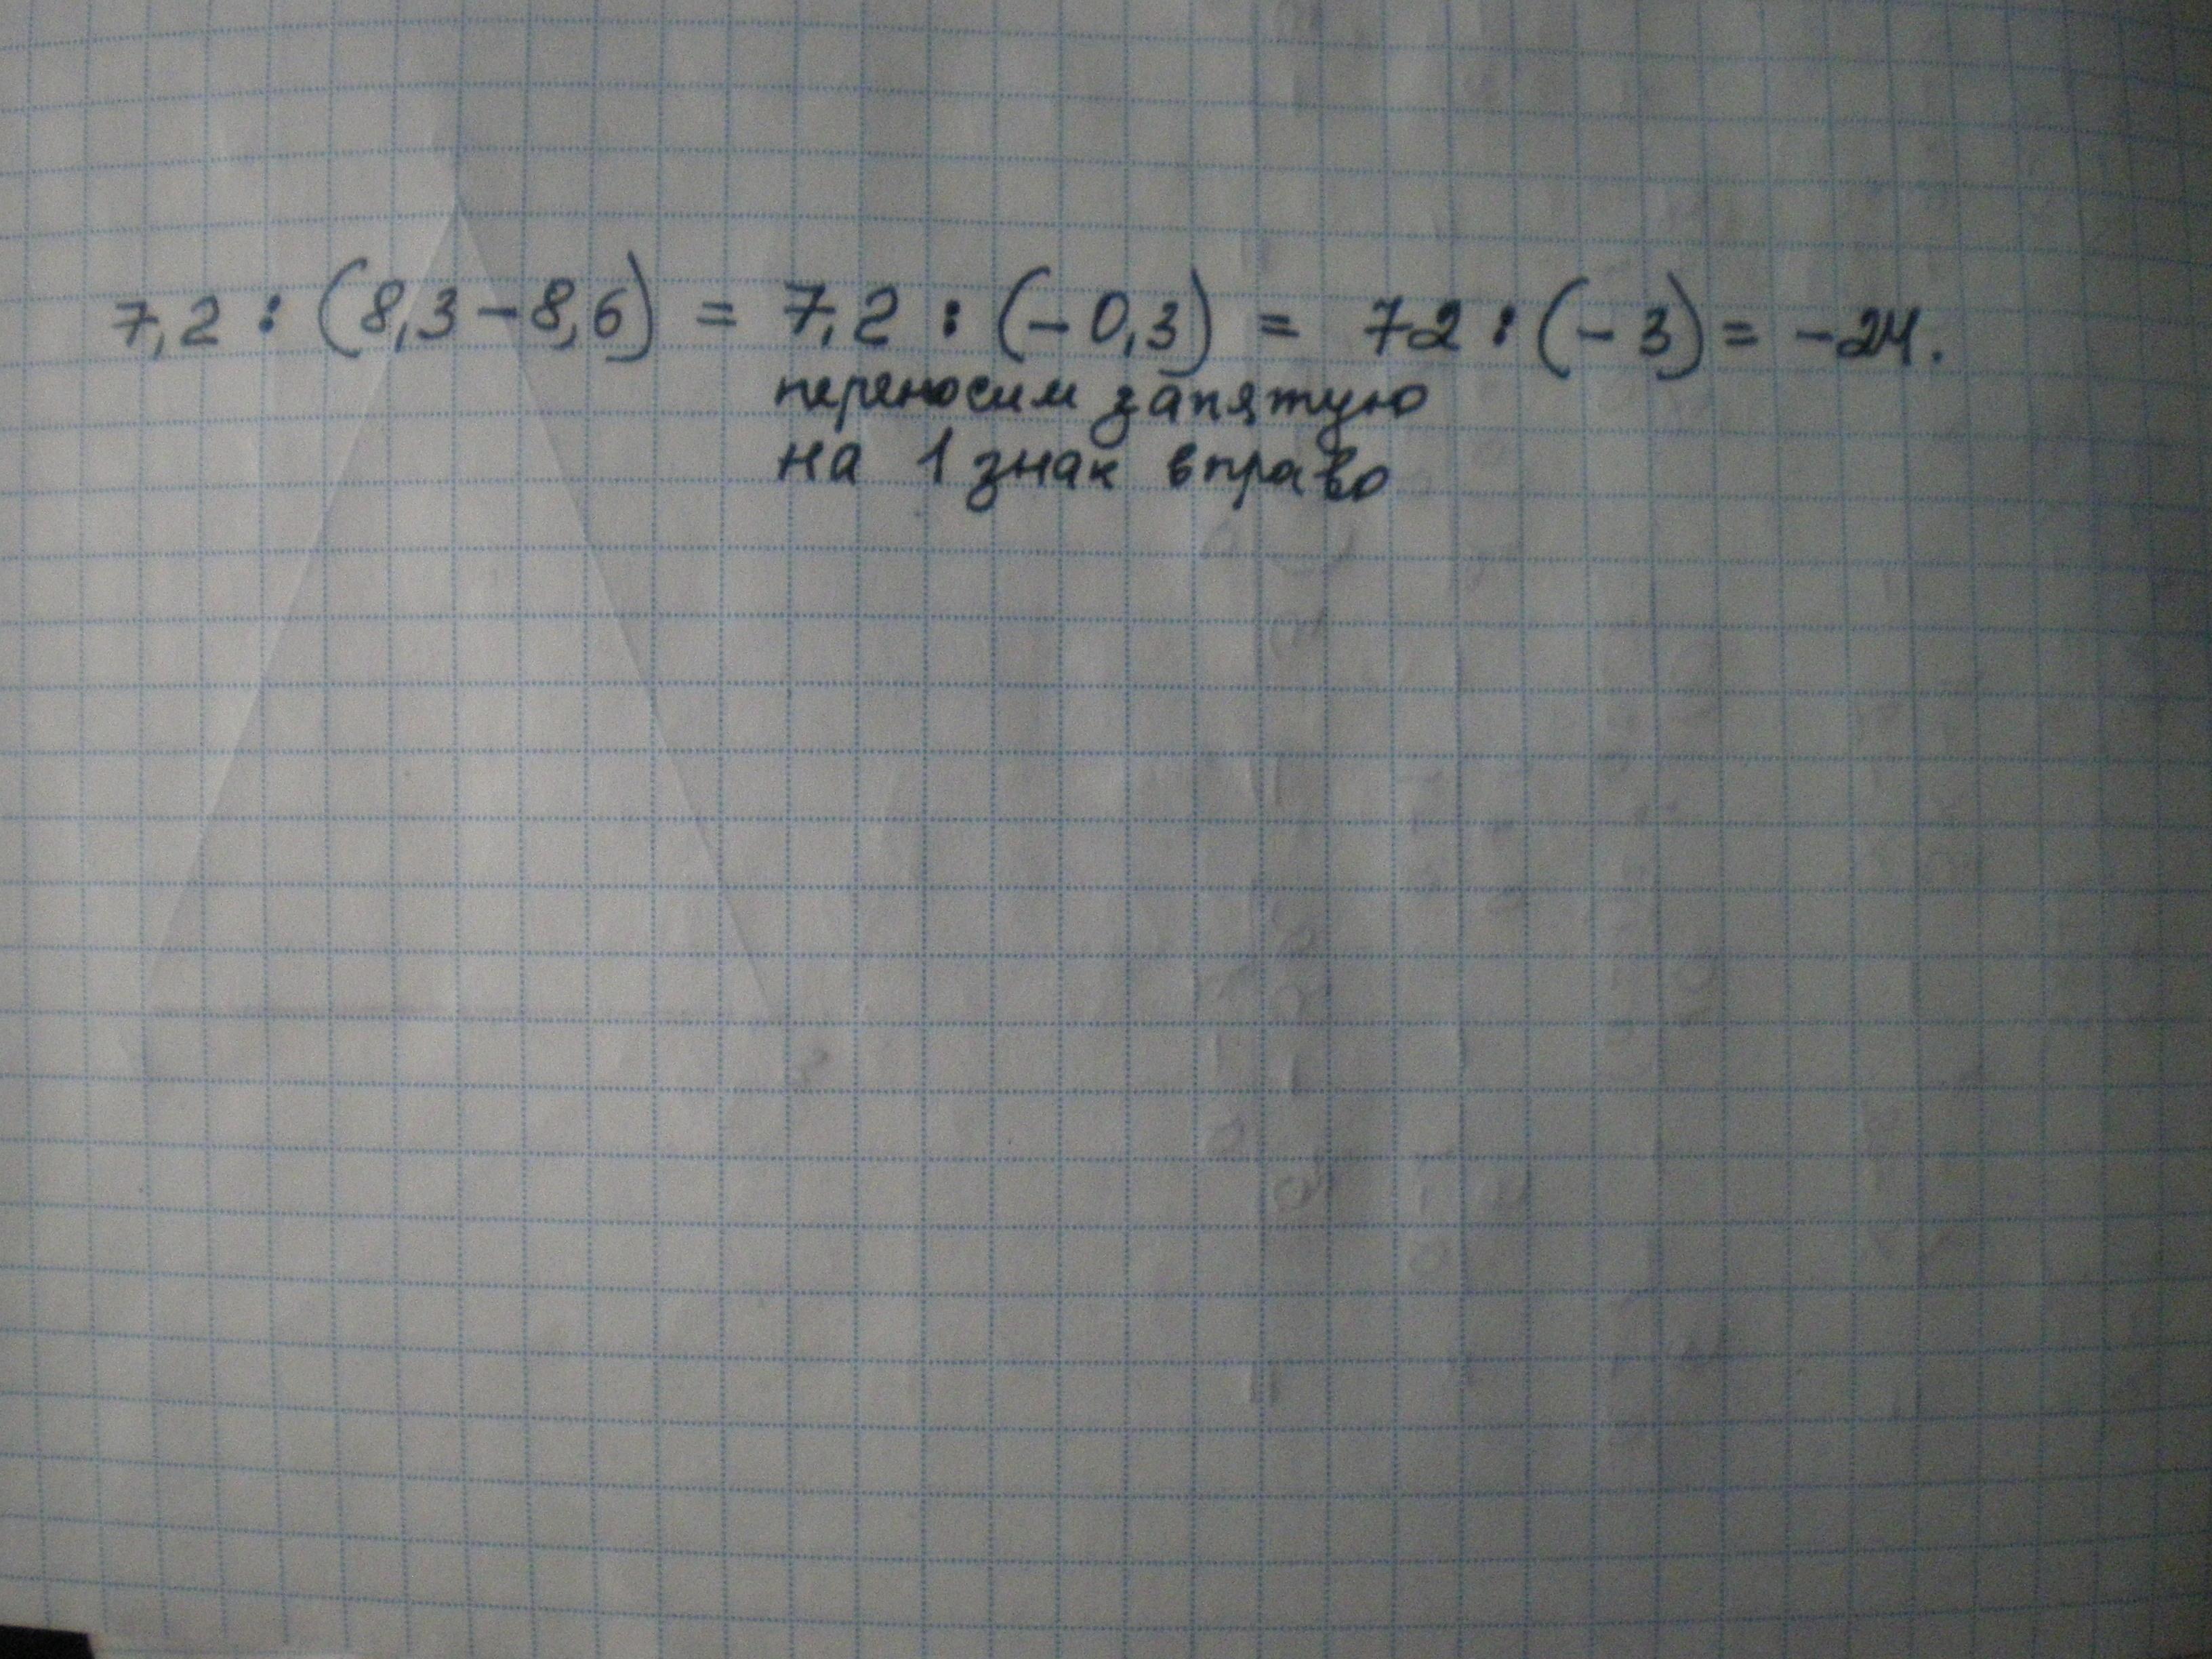 7,2 : (8,3-8,6) = 7,2 : (-0,3) = 72 : (-3) = -24.
переносим запятую
на 1 знак вправо